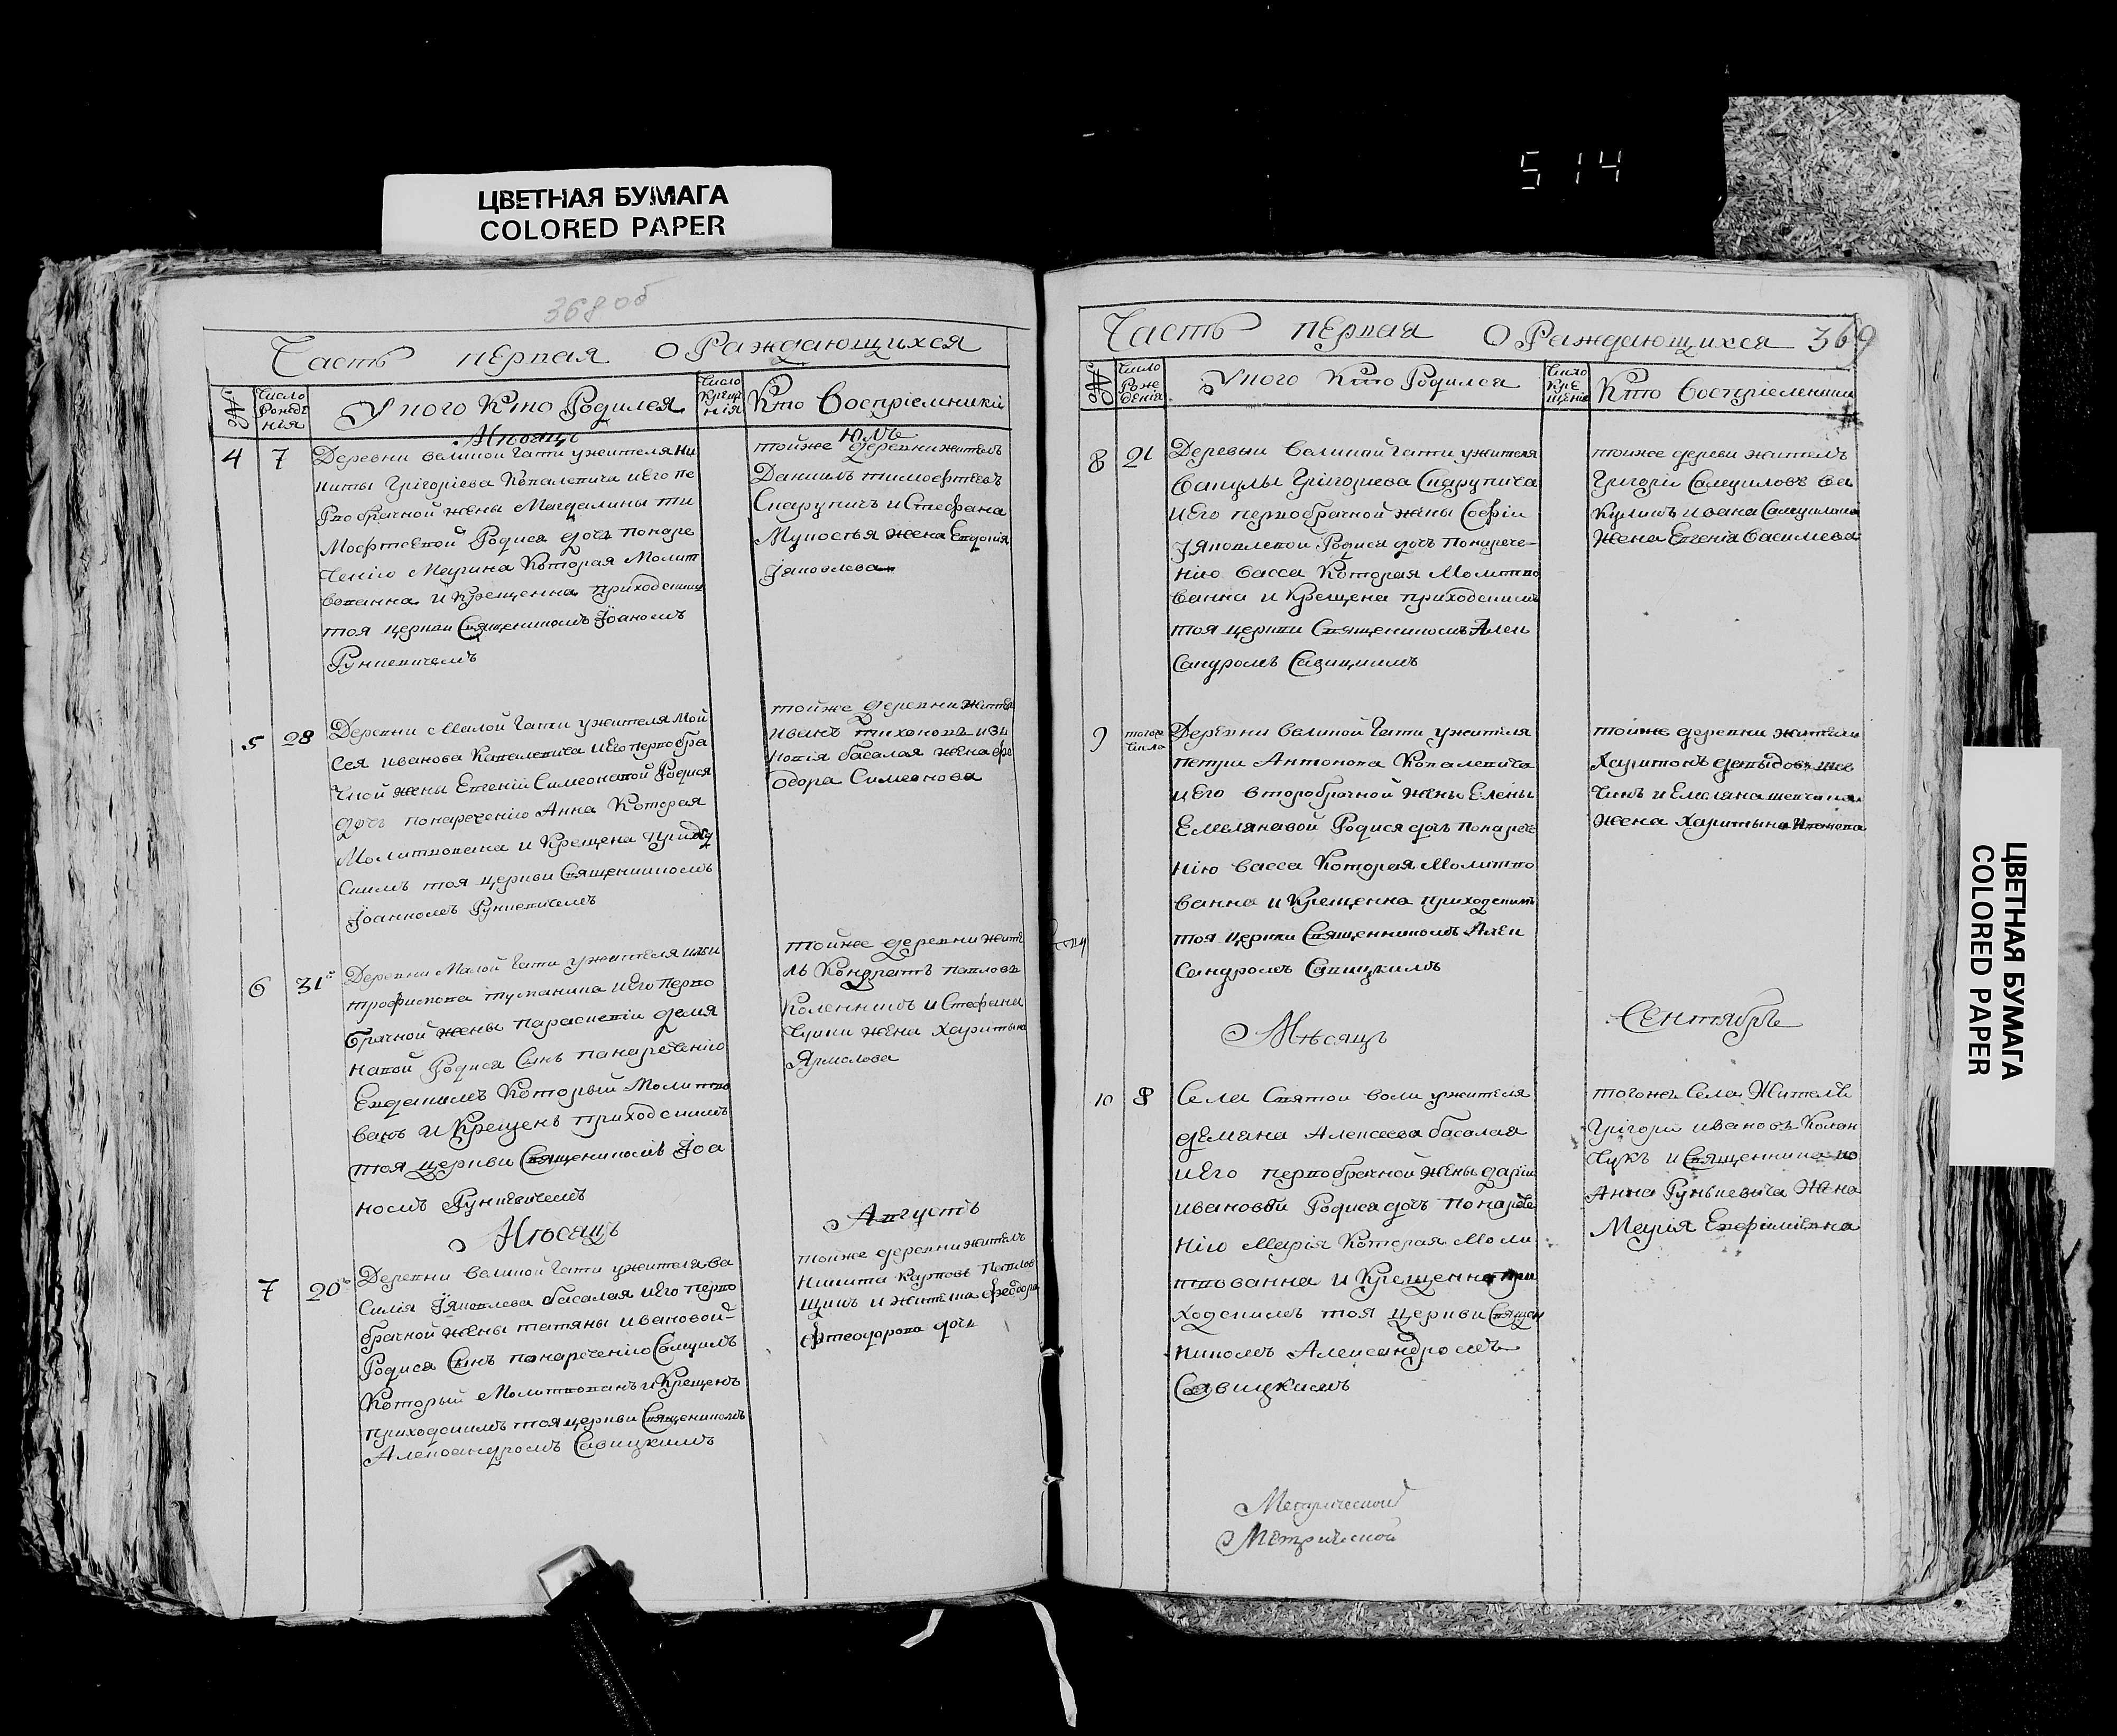 ЦВЕТНАЯ БУМАГА
COLORED PAPER
514
368 об
Часть первая о Раждающихся
№
Число Рожде нія
У кого Кто Родился
Число Крещ нія
Кто Воспріемники
Мѣсяцъ
Юль
4 7
Деревни великой Гати ужителя Ни
киты Григоріева Ковалевича иего пе
рвобрачной жены Магдалины ти
Мофтевой Родися дочь понаре
ченію Марина Которая Молит
вованна и Крещенна приходским
тоя церкви Священикомъ Іоаномъ
Рункевичемъ
тойже деревни житель
Данилъ тимофтевъ
Скарупичъ и Стефана
жена Евдокія
Яковлева
5 28
Деревни Малой Гати ужителя Мой
сея иванова Ковалевича иего первобра
чной жены Евгеніи Симеоновой Родися
дочь понареченію Анна Которая
Молитвована и Крещена приход
скимъ тоя церкви Священникомъ
Іоанномъ Рункевичемъ
тойже деревни жител
иванъ тихоновъ и
басалая жена фе
одора Симеонова
6 31
Деревни Малой Гати ужителя
трофимова туманика иего перво
брачной жены параскевіи демя
новой Родися Сынъ понареченію
Который Молитво
ванъ и Крещенъ приходскимъ
тоя церкви Священикомъ Іоа
номъ Рункевичемъ
тойже деревни жите
ль Кондратъ павловъ
и Стефана
жена Харитына
Ярмолова
Мѣсяцъ
Августъ
7 20
Деревни великой Гати ужителя ва
силія Яковлева басалая иего перво
брачной жены татяны ивановой
Родися Сынъ понареченію Самуилъ
Который Молитвованъ и Крещенъ
приходскимъ тоя церкви Священикомъ
Александромъ Савицкимъ
тойже деревни житель
Никита Карповъ
и жителя феодора
дочь
Часть первая о Раждающихся 369
№
Число Рожденія
У кого Кто Родился
Число Крещенія
Кто Воспріемники
8 21
Деревни великой Гати ужителя
Вакулы Григориева Скарупича
и Его первобрачной жены Софіи
Яковлевой Родися дочь Понарече-
нію Васса Которая Молитво
ванна и Крещена приходскимъ
тоя церкви Священикомъ Алек
сандромъ Савицкимъ
тойже дереви житель
Григорій Самуиловъ Ва
куликъ ивана Самуилова
жена Евгенія Василева
9 того же Числа
Деревни великой Гати ужителя
петра Антонова Ковалевича
и Его второбрачной жены Елены
Емеляновой Родися дочь Понарече
нію Васса Которая Молитво
ванна и Крещенна приходскимъ
тоя церкви Священникомъ Алек
сандромъ Савицкимъ
тойже деревни житель
Харитонъ шев
чикъ и Емеляна
жена Харитына
Мѣсяцъ
Сентябрь
10 8
Села Святой воли ужителя
Демяна Алексеева басалая
и Его первобрачной жены даріи
ивановой Родися дочь понарече
нію Марія Которая Моли
твованна и Крещенна при
ходскимъ тоя церкви Священ
никомъ Александромъ
Савицкимъ
тогоже Села Житель
Григори ивановъ
чукъ и Священника ио
Анна Рункевича жена
Марія Евфиміевна
Метрической
Метрической
ЦВЕТНАЯ БУМАГА
COLORED PAPER